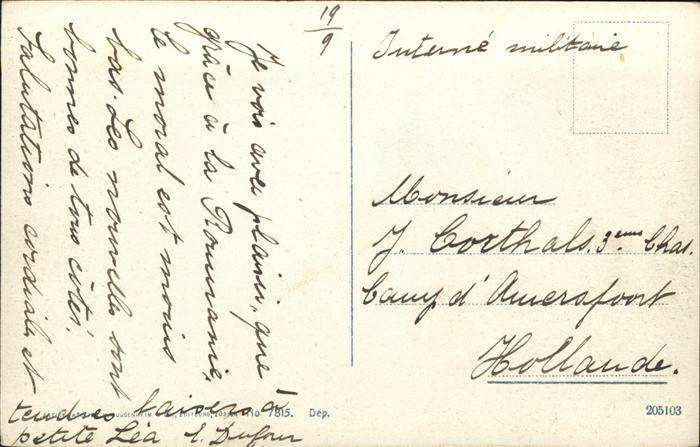 19
9
Je vois avec plaisir, que
grâce à la Roumanie,
le moral est moins
bas. Les nouvelles sont
bonnes de tous côtés.
Salutations cordiales et
tendres baisers à
petite Léa E. Dufour
Interné militaire
Monsieur
J. Corthals. 3eme Chas.
Camp d'Amersfoort
Hollande.
7815. Dép.
205103